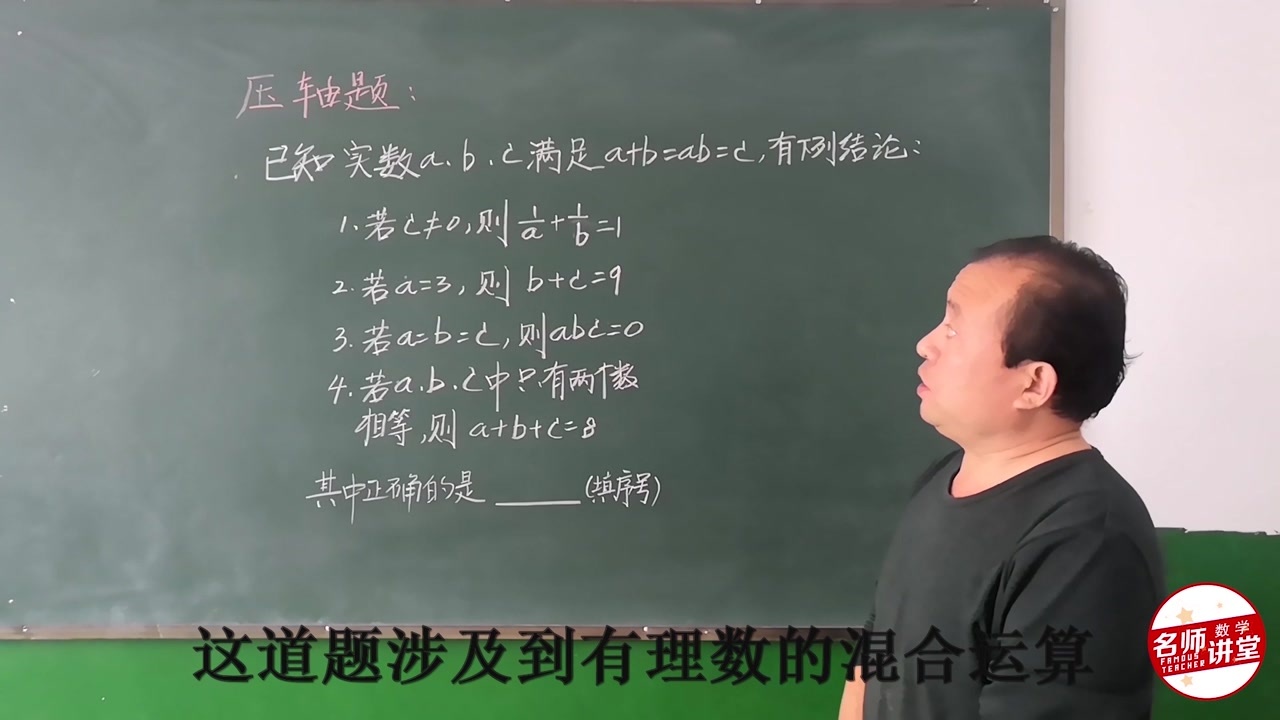 压轴题:
已知实数a、b、c满足a+b=ab=c,有下列结论:
1.若c≠0,则1/a+1/b=1
2.若a=3,则b+c=9
3.若a=b=c,则abc=0
4.若a、b、c中只有两个数
相等,则a+b+c=8
其中正确的是______(填序号)
这道题涉及到有理数的混合运算
名师数学讲堂
FAMOUS TEACHER